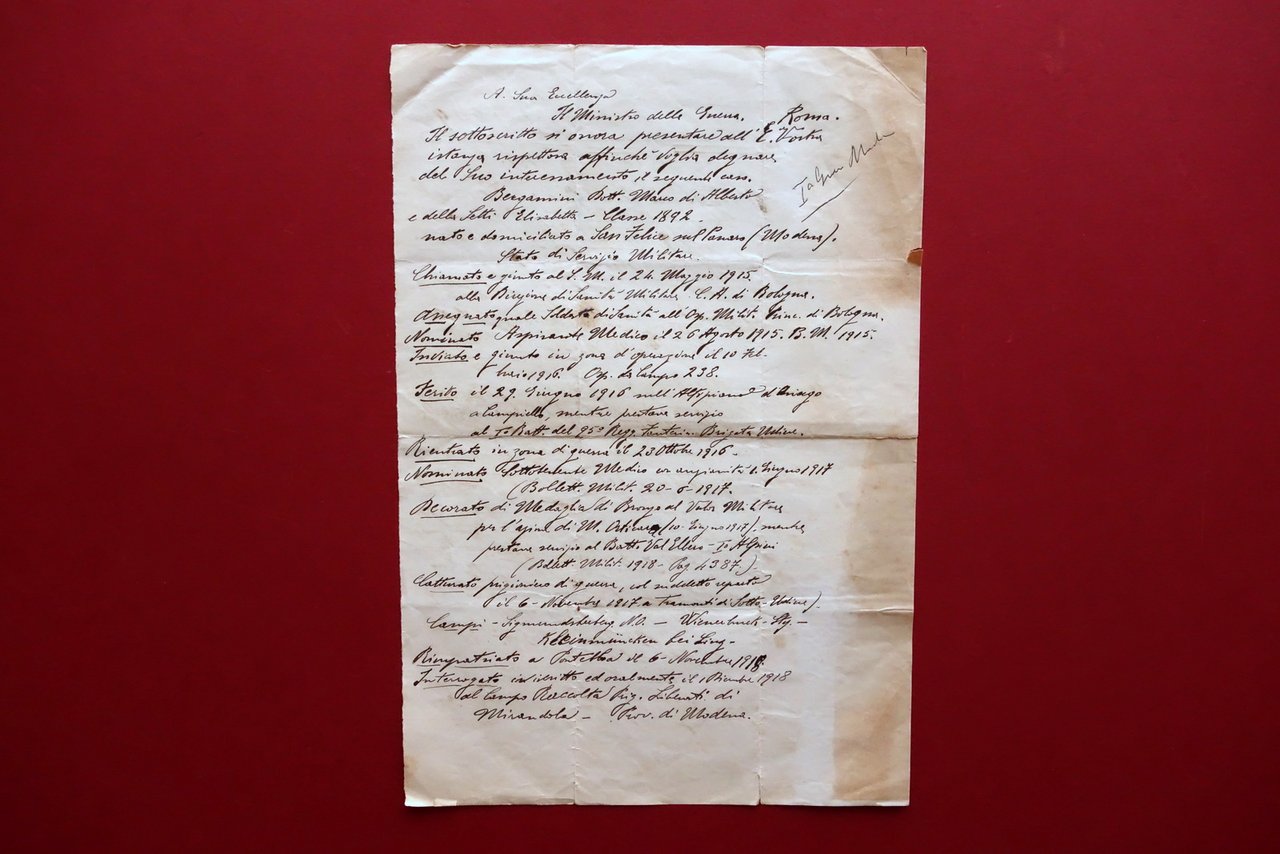 A Sua Eccellenza
Il Ministro della Guerra. Roma.
Il sottoscritto si onora presentare all'E. Vostra
istanza rispettosa affinchè voglia degnare
del Suo interessamento il seguente caso.
Bergamini Dott. Marco di Alberto
e della Setti Elisabetta - Classe 1892 -
nato e domiciliato a San Felice sul Panaro (Modena).
Stato di Servizio Militare.
Chiamato e giunto al S. M. il 24 Maggio 1915
alla Direzione di Sanità Militare C. A. di Bologna.
Assegnato quale Soldato di Sanità all'Osp. Milit. Princ. di Bologna.
Nominato Aspirante Medico il 26 Agosto 1915. B. M. 1915.
Inviato e giunto in zona d'operazione il 10 Feb-
braio 1916. Osp. da Campo 238.
Ferito il 29 Giugno 1916 sull'Altipiano d'Asiago
a Campiello, mentre prestava servizio
al I° Batt. del 95° Regg. Fanteria Brigata Udine.
Rientrato in zona di guerra il 23 Ottobre 1916 -
Nominato Sottotenente Medico con anzianità 1 Giugno 1917
(Bollett. Milit. 20-6-1917.
Decorato di Medaglia di Bronzo al Valor Militare
per l'azione di M. Ortigara (10-Giugno 1917), mentre
prestava servizio al Batt. Val Ellero - I° Alpini
(Bollett. Milit. 1918 - Pag. 4387.)
Catturato prigioniero di guerra, col suddetto reparto
il 6-Novembre 1917 a Tramonti di Sotto - Udine).
Campi - Sigmundsherberg N.O. -
Kleinmüncken bei Linz -
Rimpatriato a Pontebba il 6-Novembre 1918
Interrogato in iscritto ed oralmente il 1 Dicembre 1918
dal Campo Raccolta Prig. Liberati di
Mirandola - Prov. di Modena.